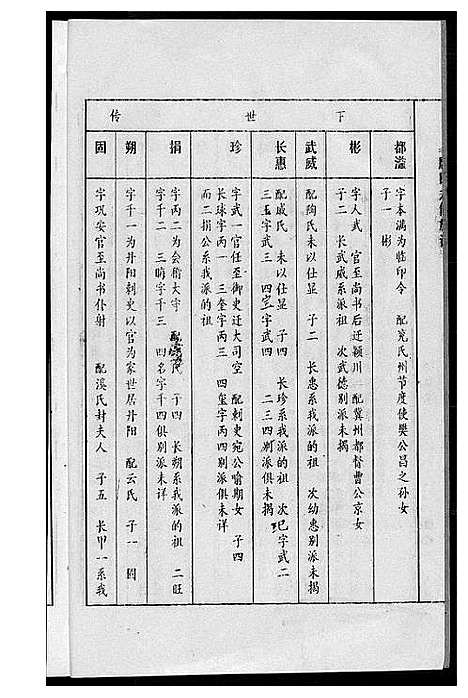 下世传
都滥
字本满为临印令 配兖氏州节度使樊公昌之孙女
子一 彬
彬
字人武 官至尚书后迁颍川 配冀州都督曹公京女
子二 长武威系派祖 次武德别派未揭
武威
配陶氏未以仕显 子二 长惠系我派的祖 次幼惠别派未揭
长惠
配威氏 未以仕显 子四 长珍系我派的祖 次 字武二
三玉字武三 四 字武四 二三四别派俱未揭
珍
字武一官任至御史迁大司空 配刺吏宛公喻期女 子四
长球字丙一 三奎字丙三 四玺字丙四别派俱未详
而二捐公系我派的祖
捐
字丙二为会稽太守 配 氏 子四 长朔系我派的祖 二旺
字千二 三晦字千三 四名字千四俱别派未详
朔
字千一为丹阳刺史以官为家世居丹阳 配云氏 子一 固
固
字巩安官至尚书仆射 配溪氏封夫人 子五 长甲一系我